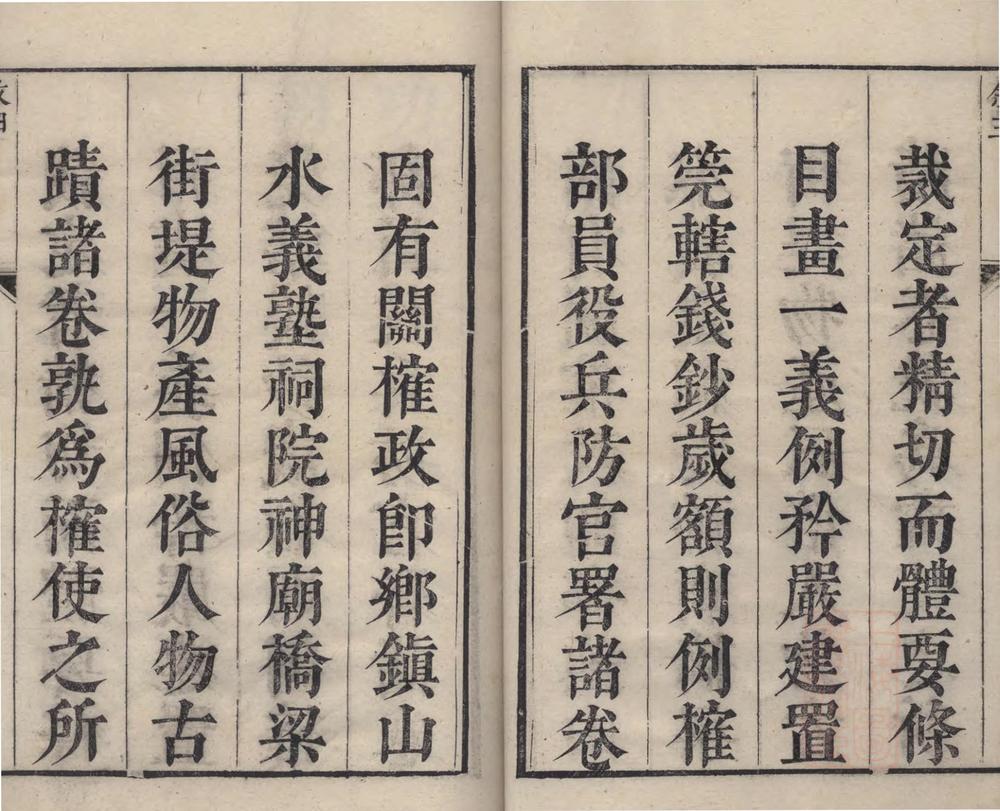 裁定者精切而體要條
目畫一義例矜嚴建置
筦轄錢鈔歲額則例榷
部員役兵防官署諸卷
固有關榷政卽鄉鎭山
水義塾祠院神廟橋梁
街堤物產風俗人物古
蹟諸卷孰爲榷使之所